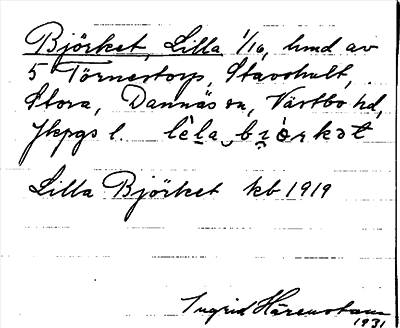 Björket, Lilla 1/16, hmd av
5 Törnestorp, Stavshult,
Stora, Dannäs sn, Västbo hd,
Jkpgs l. lèla bjö̀rkət
Lilla Björket kb 1919
Ingrid Härenstam
1931